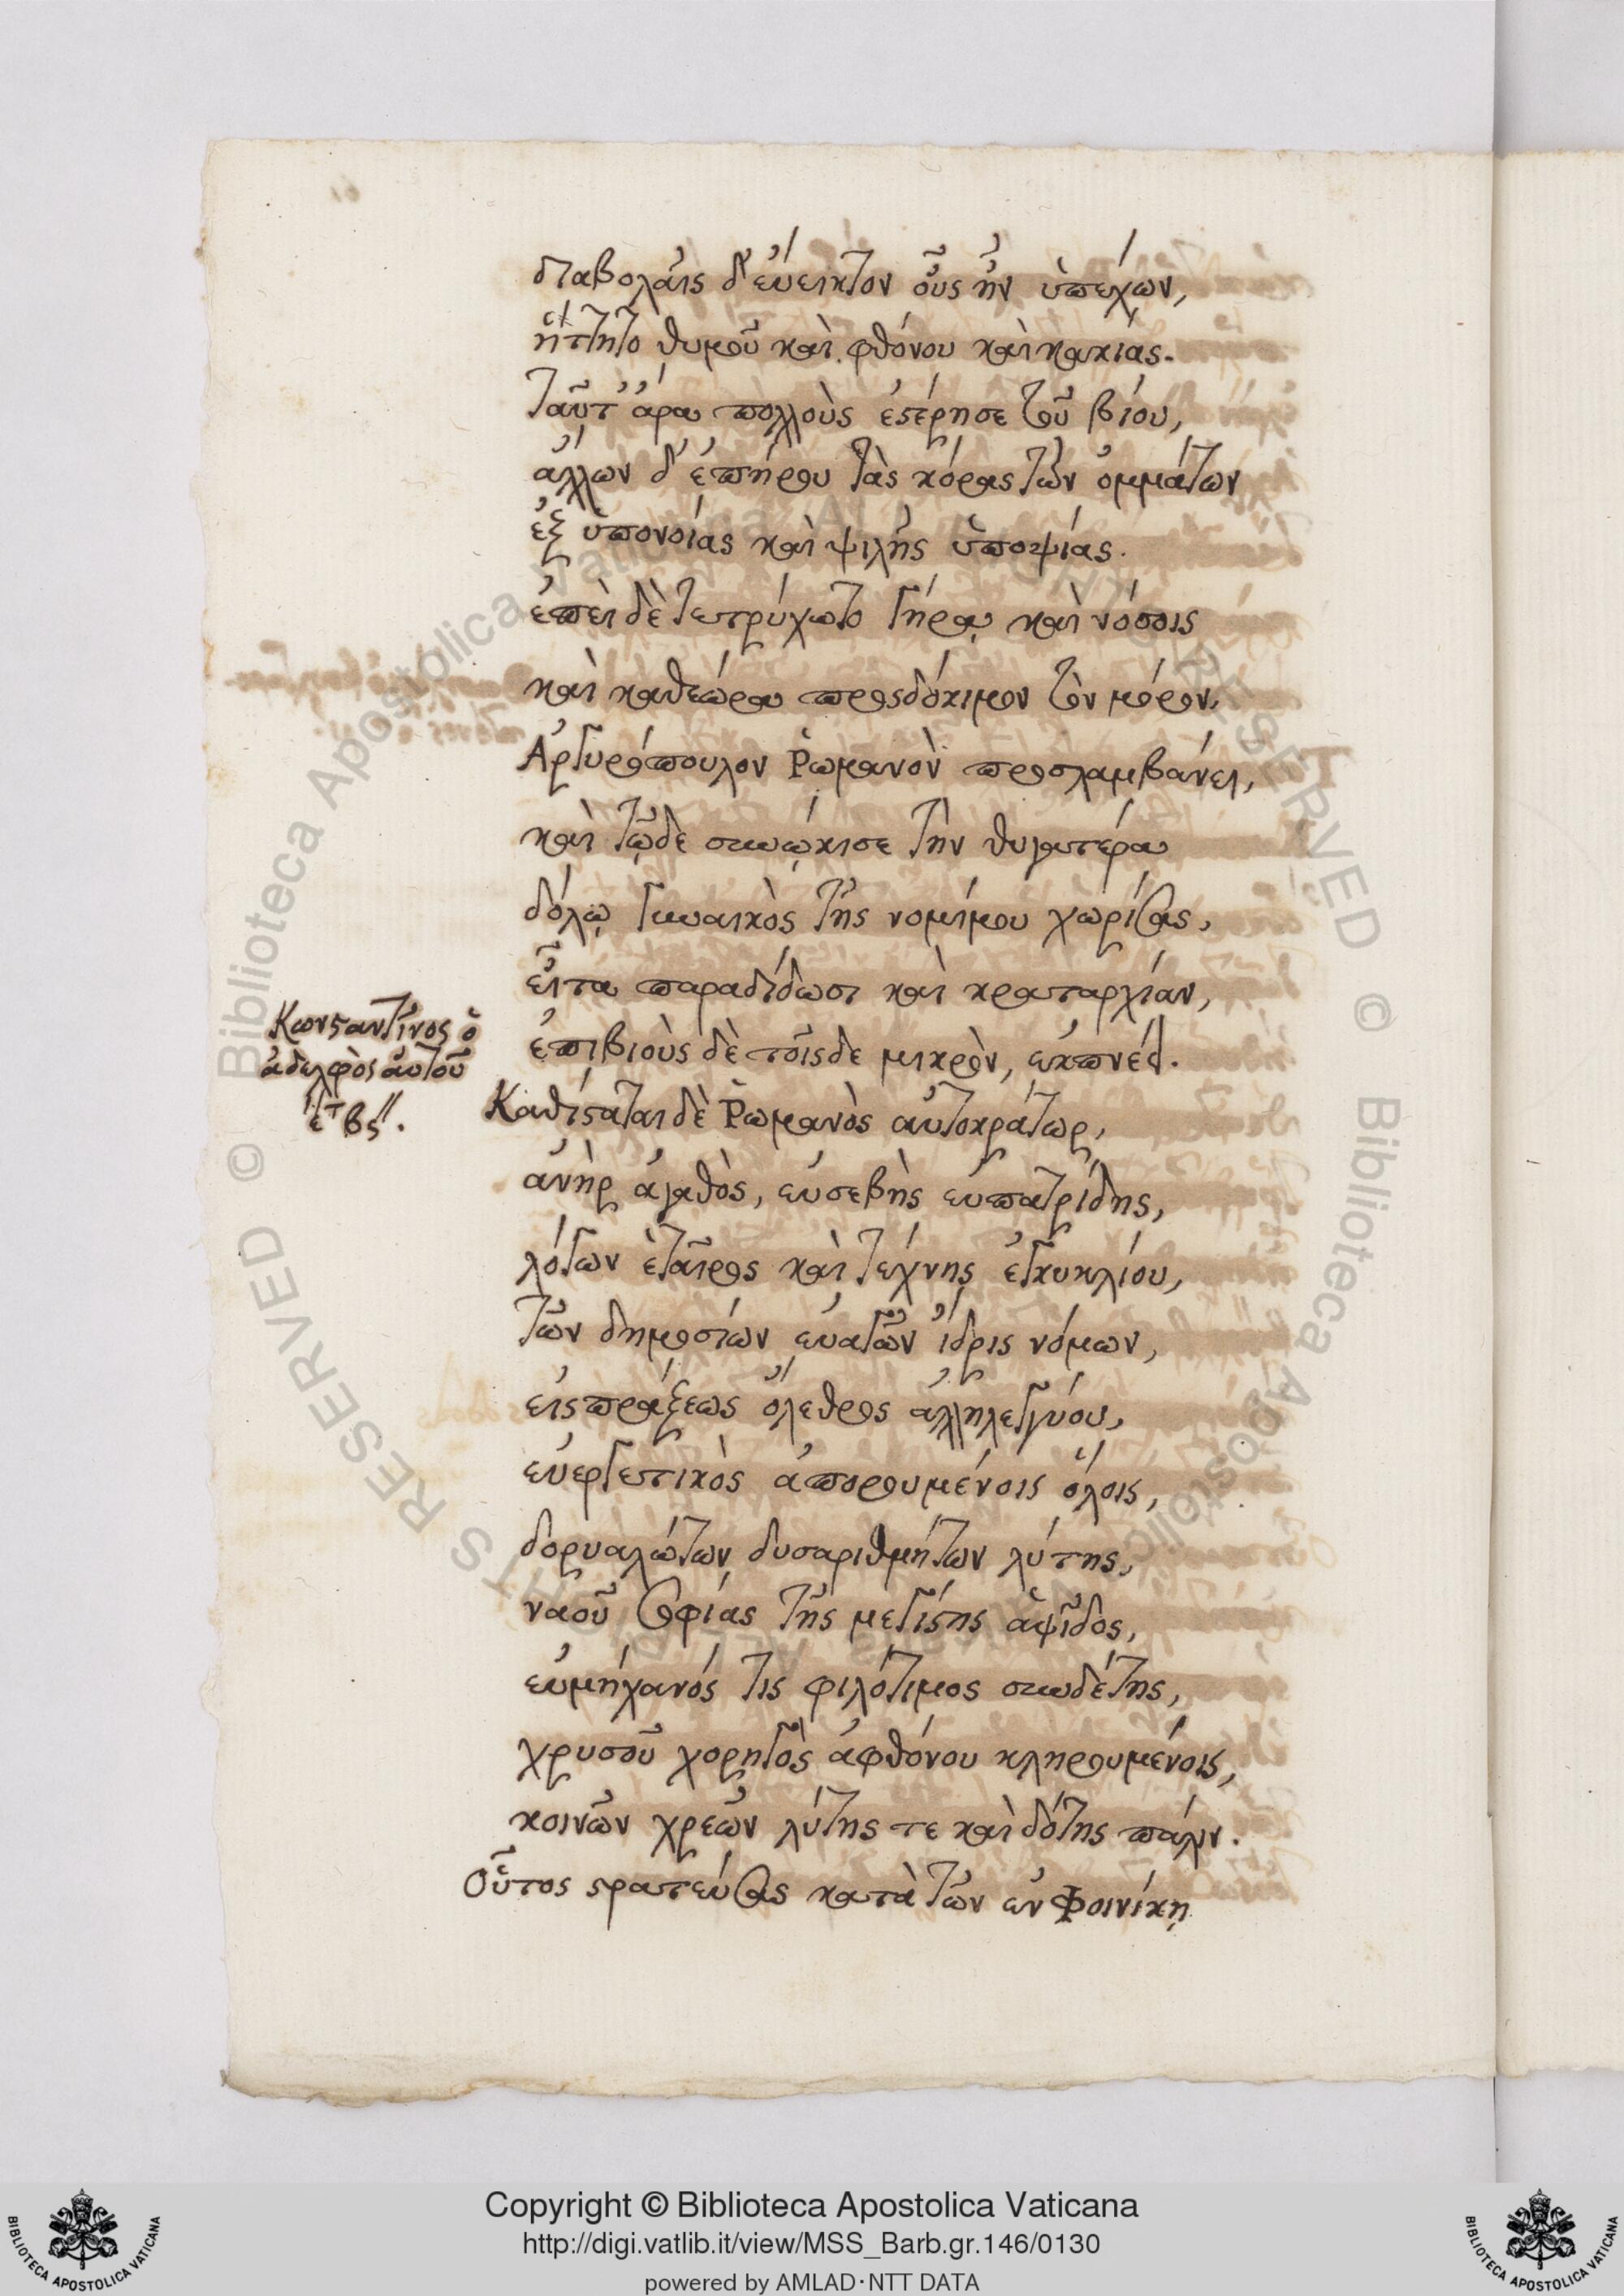 διαβολαῖς δ' εὔεικτον οὖς ἦν ὑπέχων,
ἥττητο θυμοῦ καὶ φθόνου καὶ κακίας.
Ταῦτ' ἄρα πολλοὺς ἐστέρησε τοῦ βίου,
ἄλλων δ' ἐπήρου τὰς κόρας τῶν ὀμμάτων
ἐξ ὑπονοίας καὶ ψιλῆς ὑποψίας.
ἐπεὶ δὲ τετρύχωτο γήρᾳ καὶ νόσοις
καὶ καθεώρα προσδόκιμον τὸν μόρον,
Ἀργυρόπουλον Ῥωμανὸν προσλαμβάνει,
καὶ τῷδε συνῴκισε τὴν θυγατέρα
δόλῳ γυναικὸς τῆς νομίμου χωρίσας,
εἶτα παραδίδωσι καὶ κραταρχίαν,
Κωνσταντῖνος ὁ
ἀδελφὸς αὐτοῦ
ἔτ βϛ´´.
ἐπιβιοὺς δὲ τοῖσδε μικρὸν, ἐκπνέει.
Καθίσταται δὲ Ῥωμανὸς αὐτοκράτωρ,
ἀνὴρ ἀγαθὸς, εὐσεβὴς εὐπατρίδης,
λόγων ἑταῖρος καὶ τέχνης ἐγκυκλίου,
τῶν δημοσίων εὐαγῶν ἴδρις νόμων,
εἰσπράξεως ὄλεθρος ἀλληλεγγύου,
εὐεργετικὸς ἀπορουμένοις ὅλοις,
δορυαλώτων δυσαριθμήτων λύτης,
ναοῦ σοφίας τῆς μεγίστης ἁψῖδος,
εὐμήχανός τις φιλότιμος συνδέτης,
χρυσοῦ χορηγὸς ἀφθόνου κληρουμένοις,
κοινῶν χρεῶν λύτης τε καὶ δότης πάλιν.
Οὗτος στρατεύσας κατὰ τῶν ἐν Φοινίκῃ
© Biblioteca Apostolica Vaticana
Copyright © Biblioteca Apostolica Vaticana
http://digi.vatlib.it/view/MSS_Barb.gr.146/0130
powered by AMLAD·NTT DATA
BIBLIOTECA APOSTOLICA VATICANA
BIBLIOTECA APOSTOLICA VATICANA